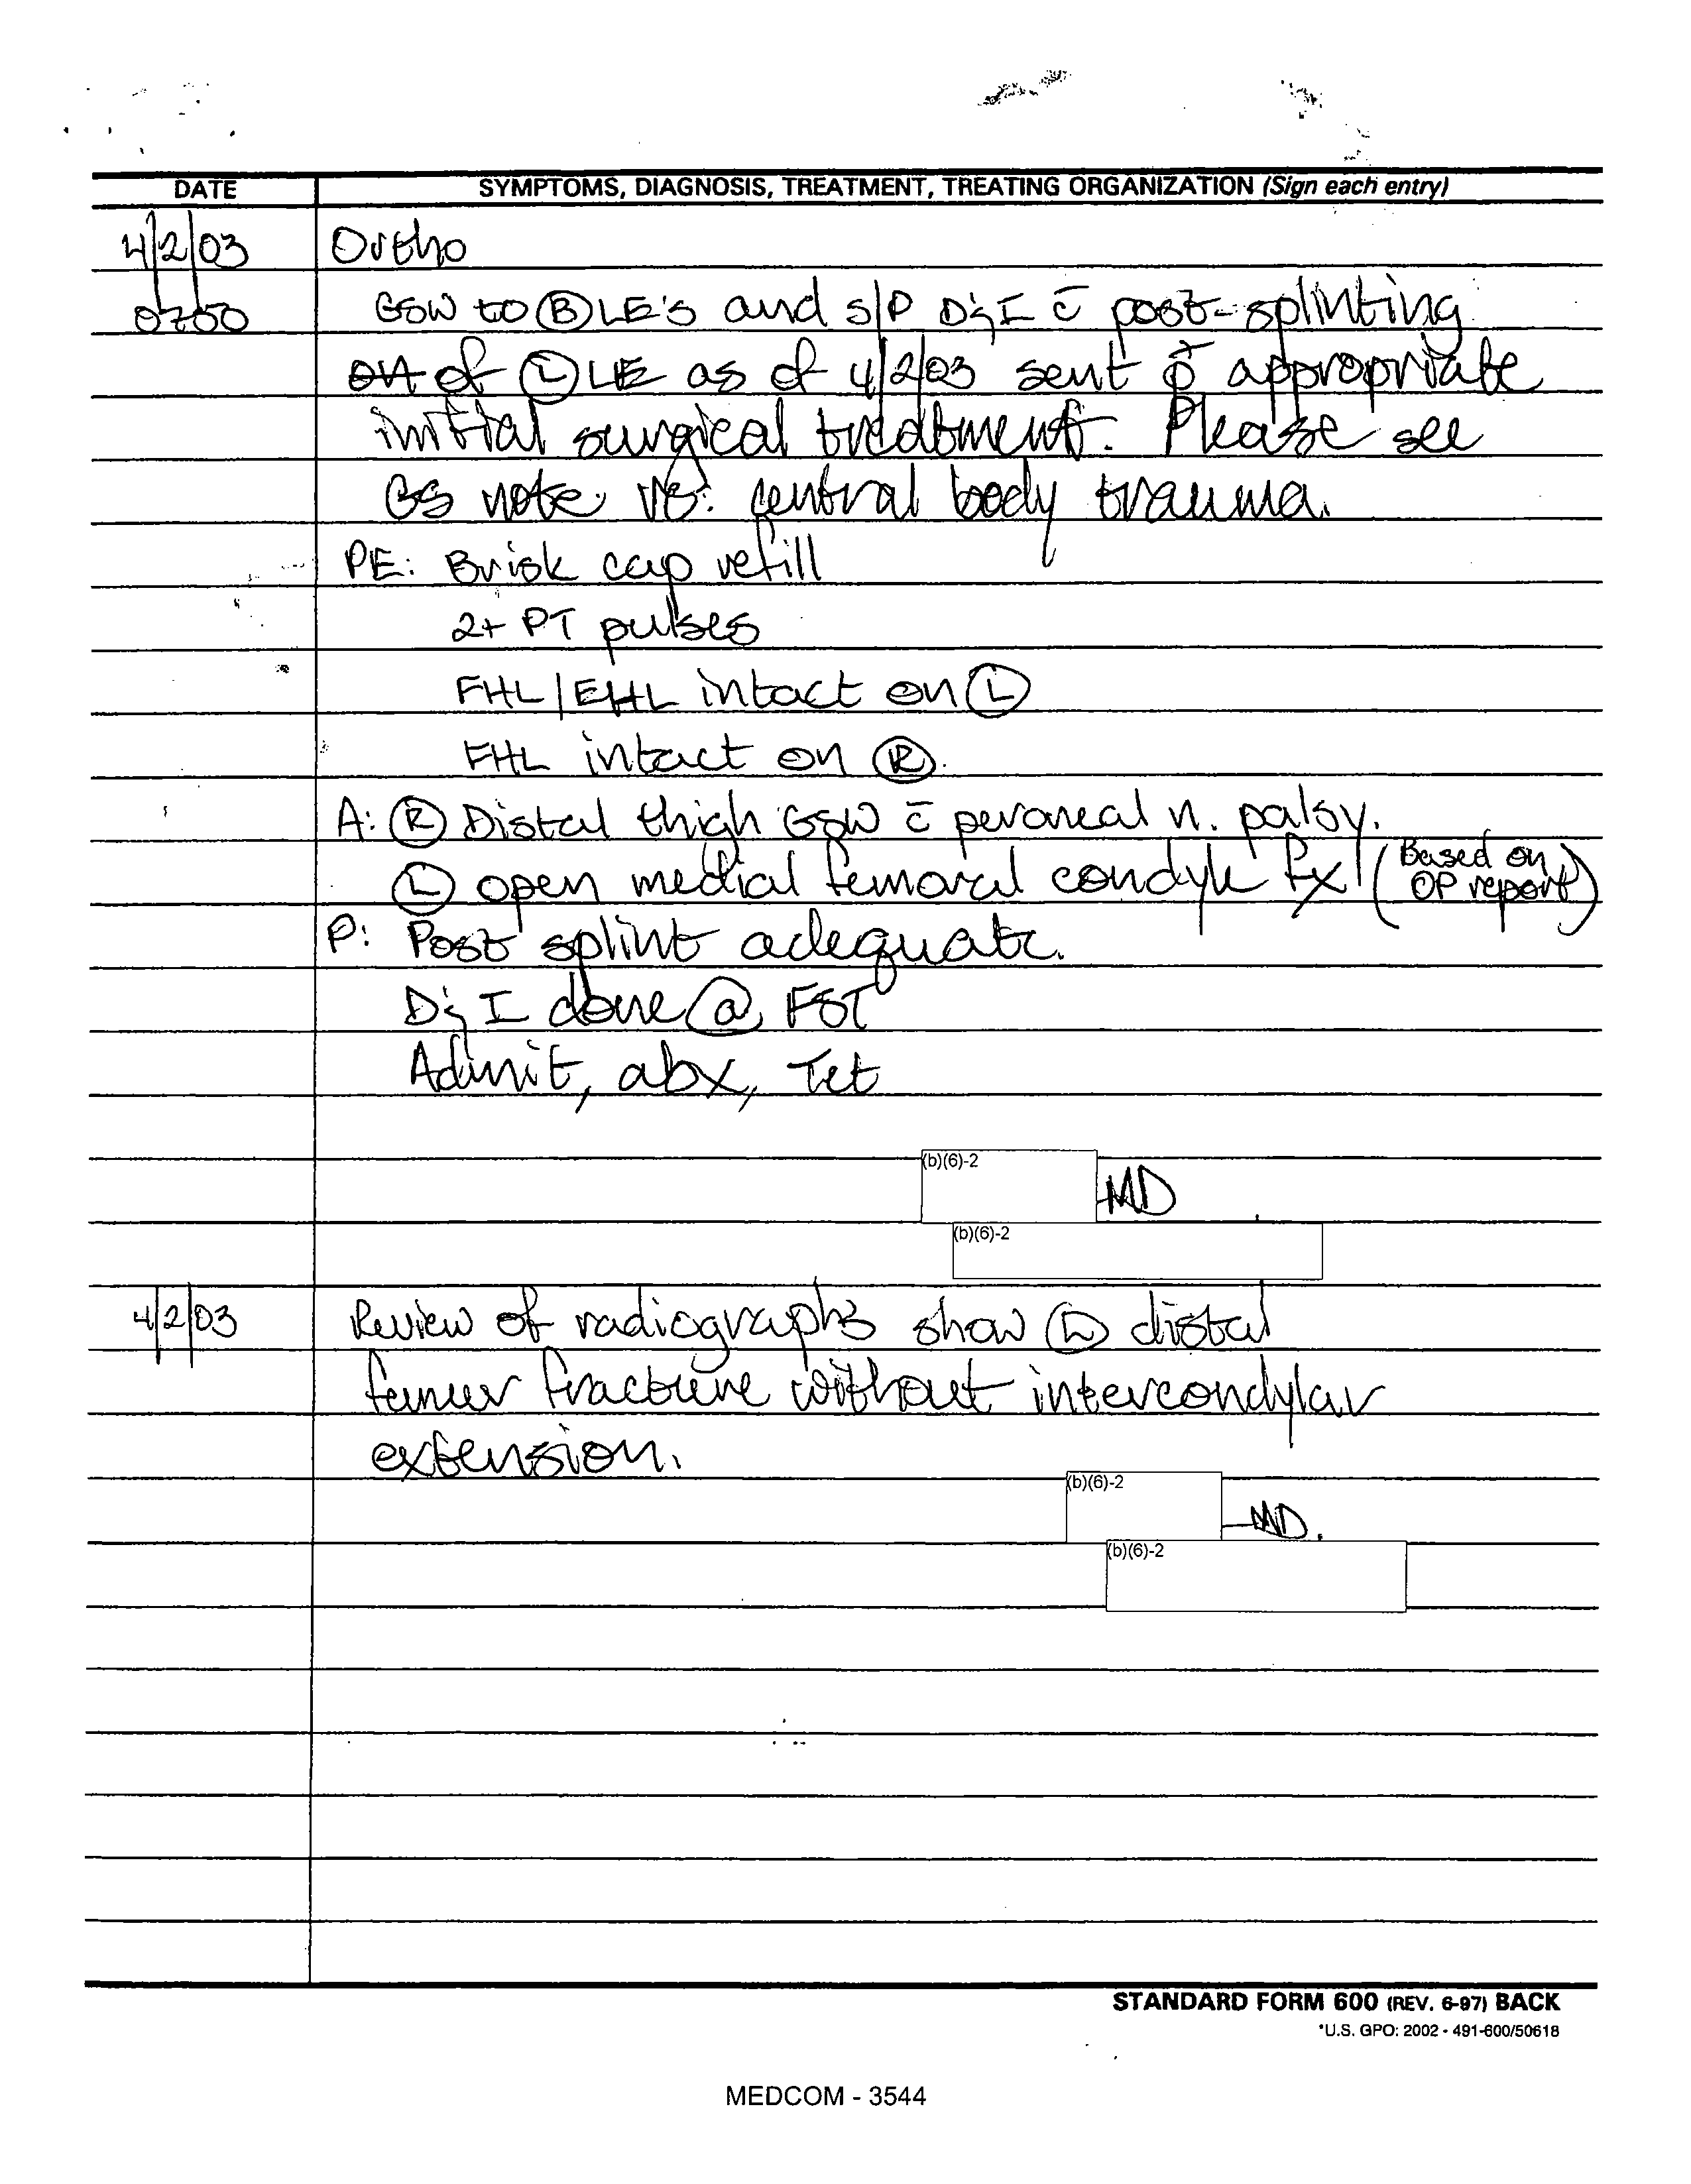 DATE SYMPTOMS, DIAGNOSIS, TREATMENT, TREATING ORGANIZATION (Sign each entry)
4/2/03 Ortho
0700 GSW to Ⓑ LE's and s/p D&I c̄ post-splinting
of Ⓛ LE as of 4/2/03 sent p̄ appropriate
initial surgical treatment. Please see
GS note re: central body trauma.
PE: Brisk cap refill
2+ PT pulses
FHL/EHL intact on Ⓛ
FHL intact on Ⓡ.
A: Ⓡ Distal thigh GSW c̄ peroneal n. palsy.
Ⓛ open medial femoral condyle fx (Based on
OP report)
P: Post splint adequate.
D&I done @ FST
Admit, abx, Tet
(b)(6)-2 MD
(b)(6)-2
4/2/03 Review of radiographs show Ⓛ distal
femur fracture without intercondylar
extension.
(b)(6)-2 MD.
(b)(6)-2
STANDARD FORM 600 (REV. 6-97) BACK
*U.S. GPO: 2002 - 491-600/50618
MEDCOM - 3544